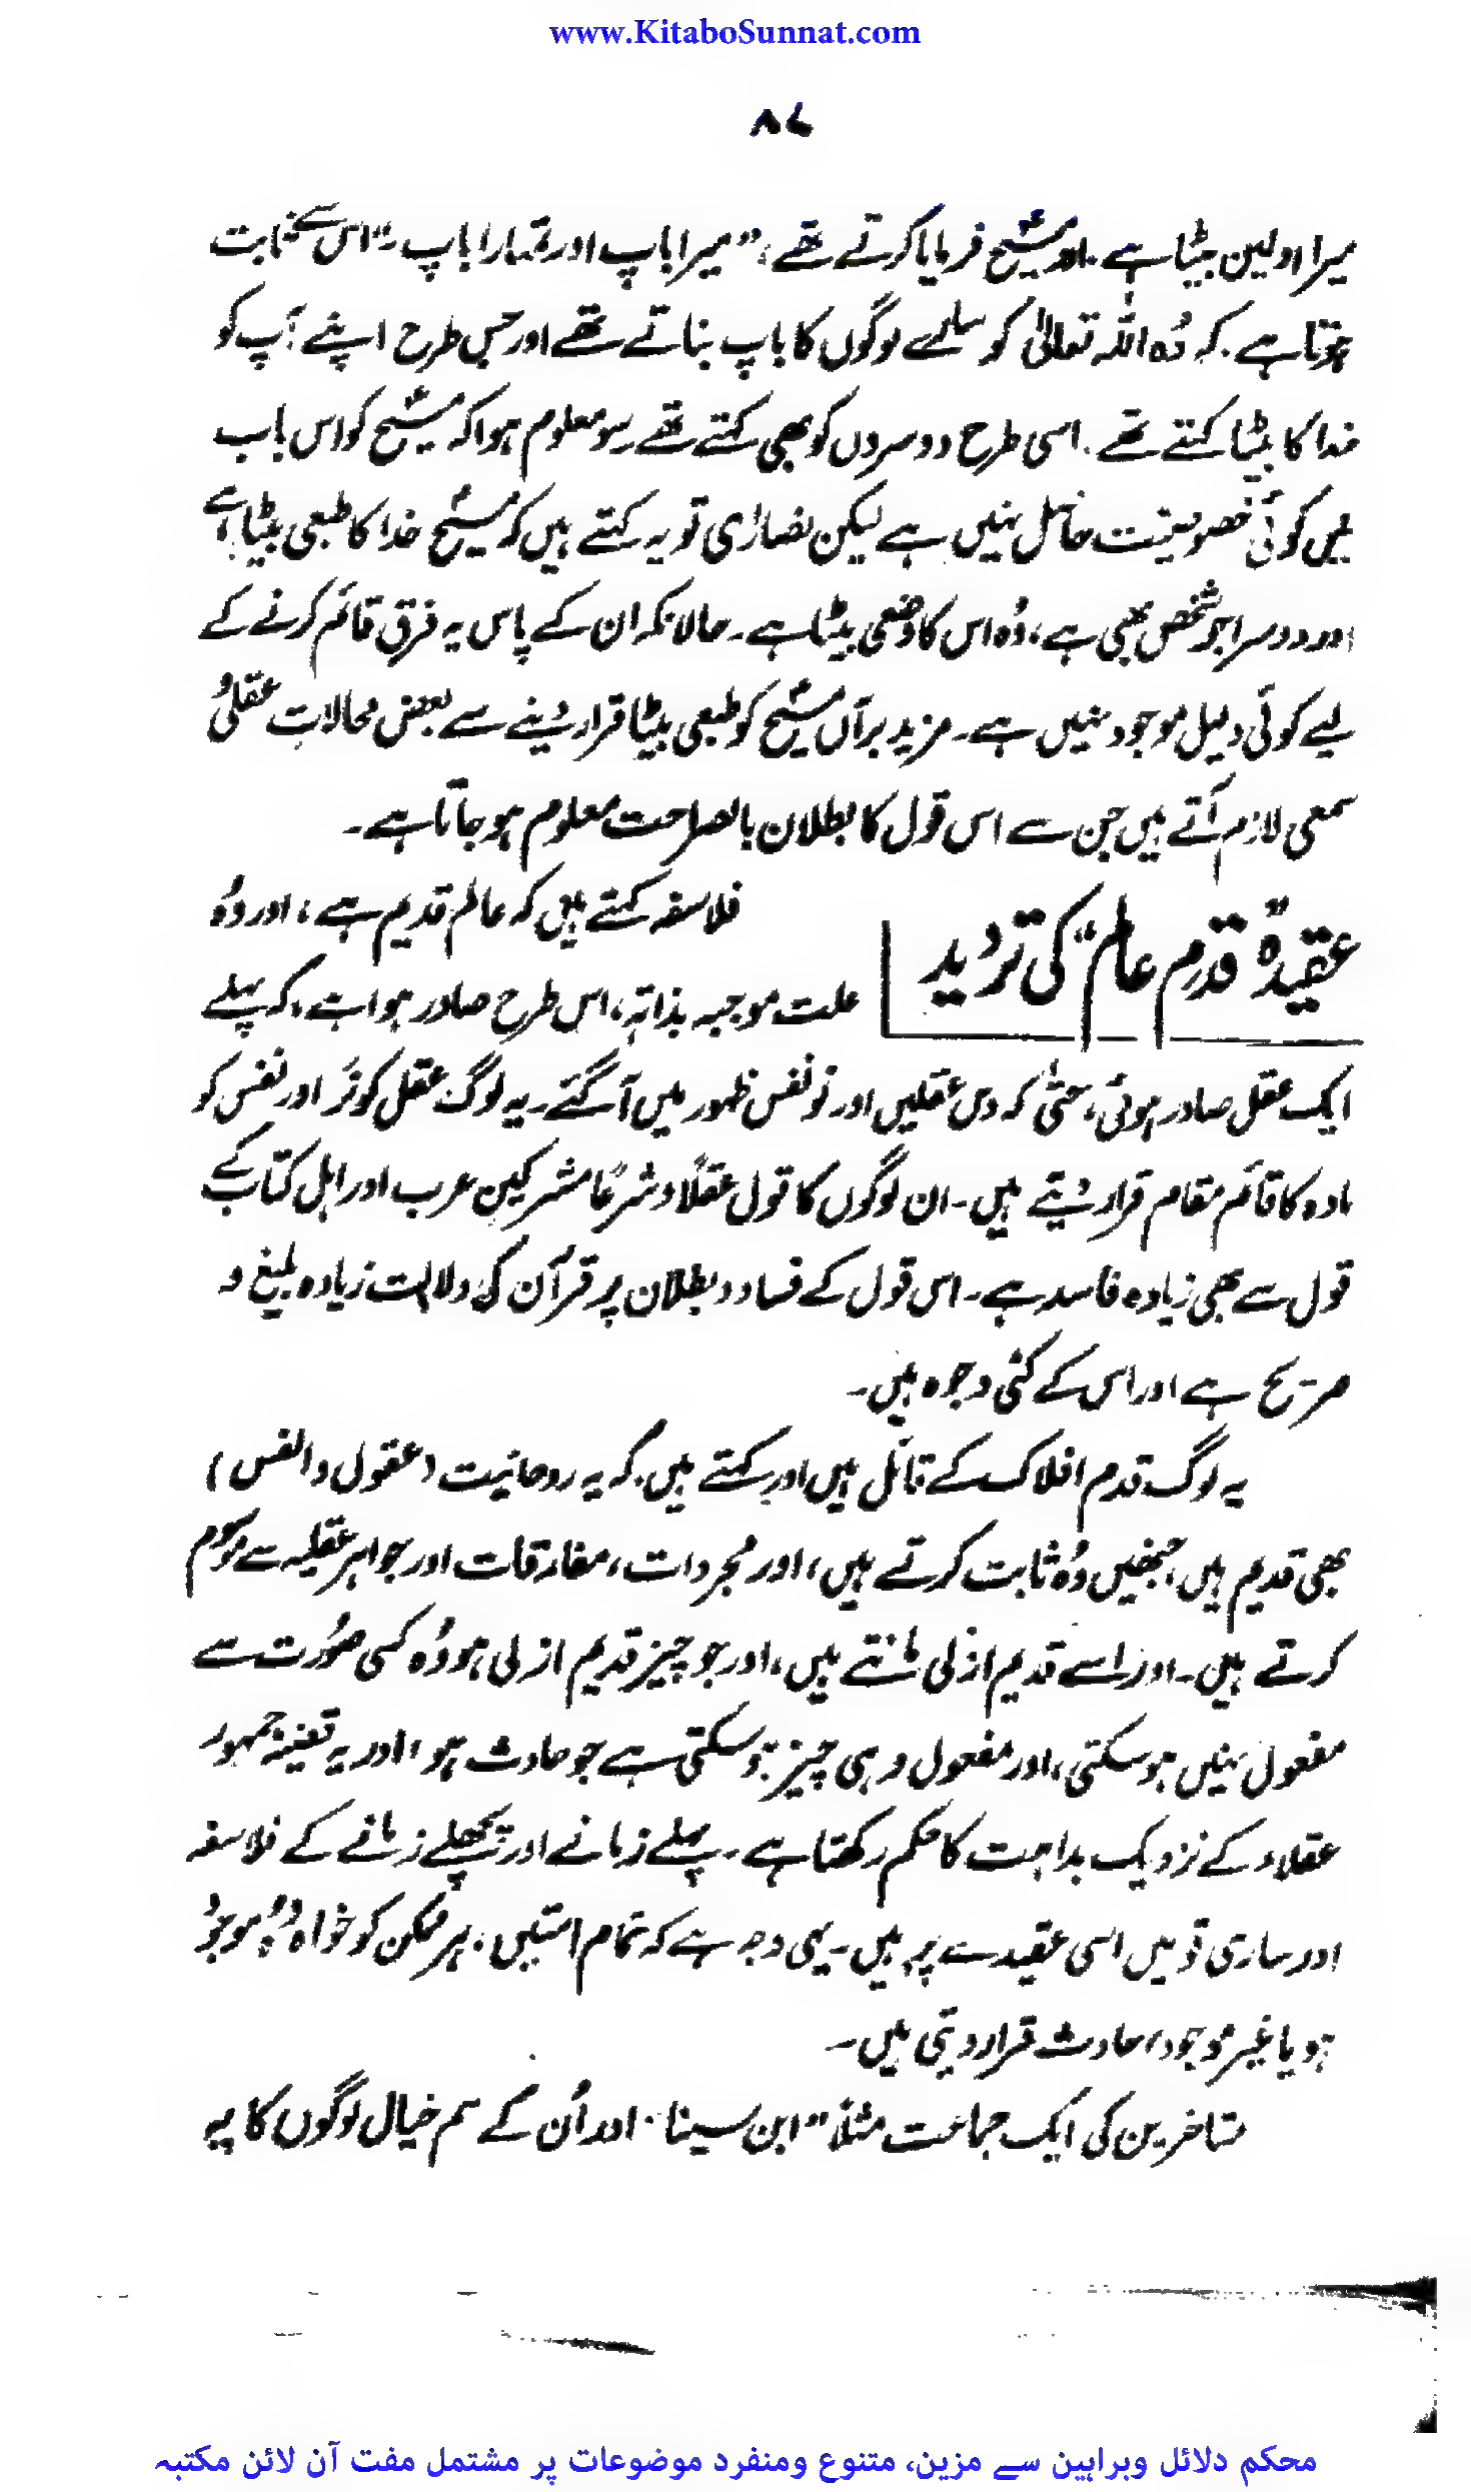 www.KitaboSunnat.com
۸۷
میرا اولین بیٹا ہے۔ اور مسیحؑ فرمایا کرتے تھے، ”میرا باپ اور تمہارا باپ۔“ اس سے ثابت
ہوتا ہے۔ کہ وُہ اللہ تعالیٰ کو سارے لوگوں کا باپ بتاتے تھے اور جس طرح اپنے آپ کو
خدا کا بیٹا کہتے تھے۔ اسی طرح دوسروں کو بھی کہتے تھے۔ سو معلوم ہوا کہ مسیحؑ کو اس باب
میں کوئی خصوصیت حاصل نہیں ہے لیکن نصارٰی تو یہ کہتے ہیں کہ مسیحؑ خدا کا طبعی بیٹا ہے
اور دوسرا جو شخص بھی ہے، وُہ اس کا وضعی بیٹا ہے۔ حالانکہ ان کے پاس یہ فرق قائم کرنے کے
لیے کوئی دلیل موجود نہیں ہے۔ مزید برآں مسیحؑ کو طبعی بیٹا قرار دینے سے بعض محالات عقلی و
سمعی لازم آتے ہیں جن سے اس قول کا بطلان بالصراحت معلوم ہو جاتا ہے۔
عقیدہ ”قدم عالم“ کی تردید
فلاسفہ کہتے ہیں کہ عالم قدیم ہے، اور وُہ
علت موجبہ بذاتہ، اس طرح صادر ہوا ہے، کہ پہلے
ایک عقل صادر ہوئی، حتیٰ کہ دس عقلیں اور نو نفس ظہور میں آ گئے۔ یہ لوگ عقل کو نَر اور نفس کو
مادہ کا قائم مقام قرار دیتے ہیں۔ ان لوگوں کا قول عقلاً و شرعاً مشرکین عرب اور اہل کتاب کے
قول سے بھی زیادہ فاسد ہے۔ اس قول کے فساد و بطلان پر قرآن کی دلالت زیادہ بلیغ و
صریح ہے اور اس کے کئی وجوہ ہیں۔
یہ لوگ قدم افلاک کے قائل ہیں اور کہتے ہیں۔ کہ یہ روحانیت (عقول و انفس)
بھی قدیم ہیں، جنھیں وُہ ثابت کرتے ہیں، اور مجردات، مفارقات اور جواہر عقلیہ سے موسوم
کرتے ہیں۔ اور اسے قدیم ازلی مانتے ہیں، اور جو چیز قدیم ازلی ہو وُہ کسی صُورت سے
مفعول نہیں ہو سکتی، اور مفعول وہی چیز ہو سکتی ہے جو حادث ہو، اور یہ قضیۂ جمہور
عقلاء کے نزدیک بداہت کا حکم رکھتا ہے۔ پہلے زمانے اور پچھلے زمانے کے فلاسفہ
اور ساری قومیں اسی عقیدے پر ہیں۔ یہی وجہ ہے کہ تمام امتیں، ہر ممکن کو خواہ وُہ موجُود
ہو یا غیر موجود، حادث قرار دیتی ہیں۔
متاخرین کی ایک جماعت مثلاً ”ابن سینا“ اور اُن کے ہم خیال لوگوں کا یہ
محکم دلائل وبراہین سے مزین، متنوع ومنفرد موضوعات پر مشتمل مفت آن لائن مکتبہ